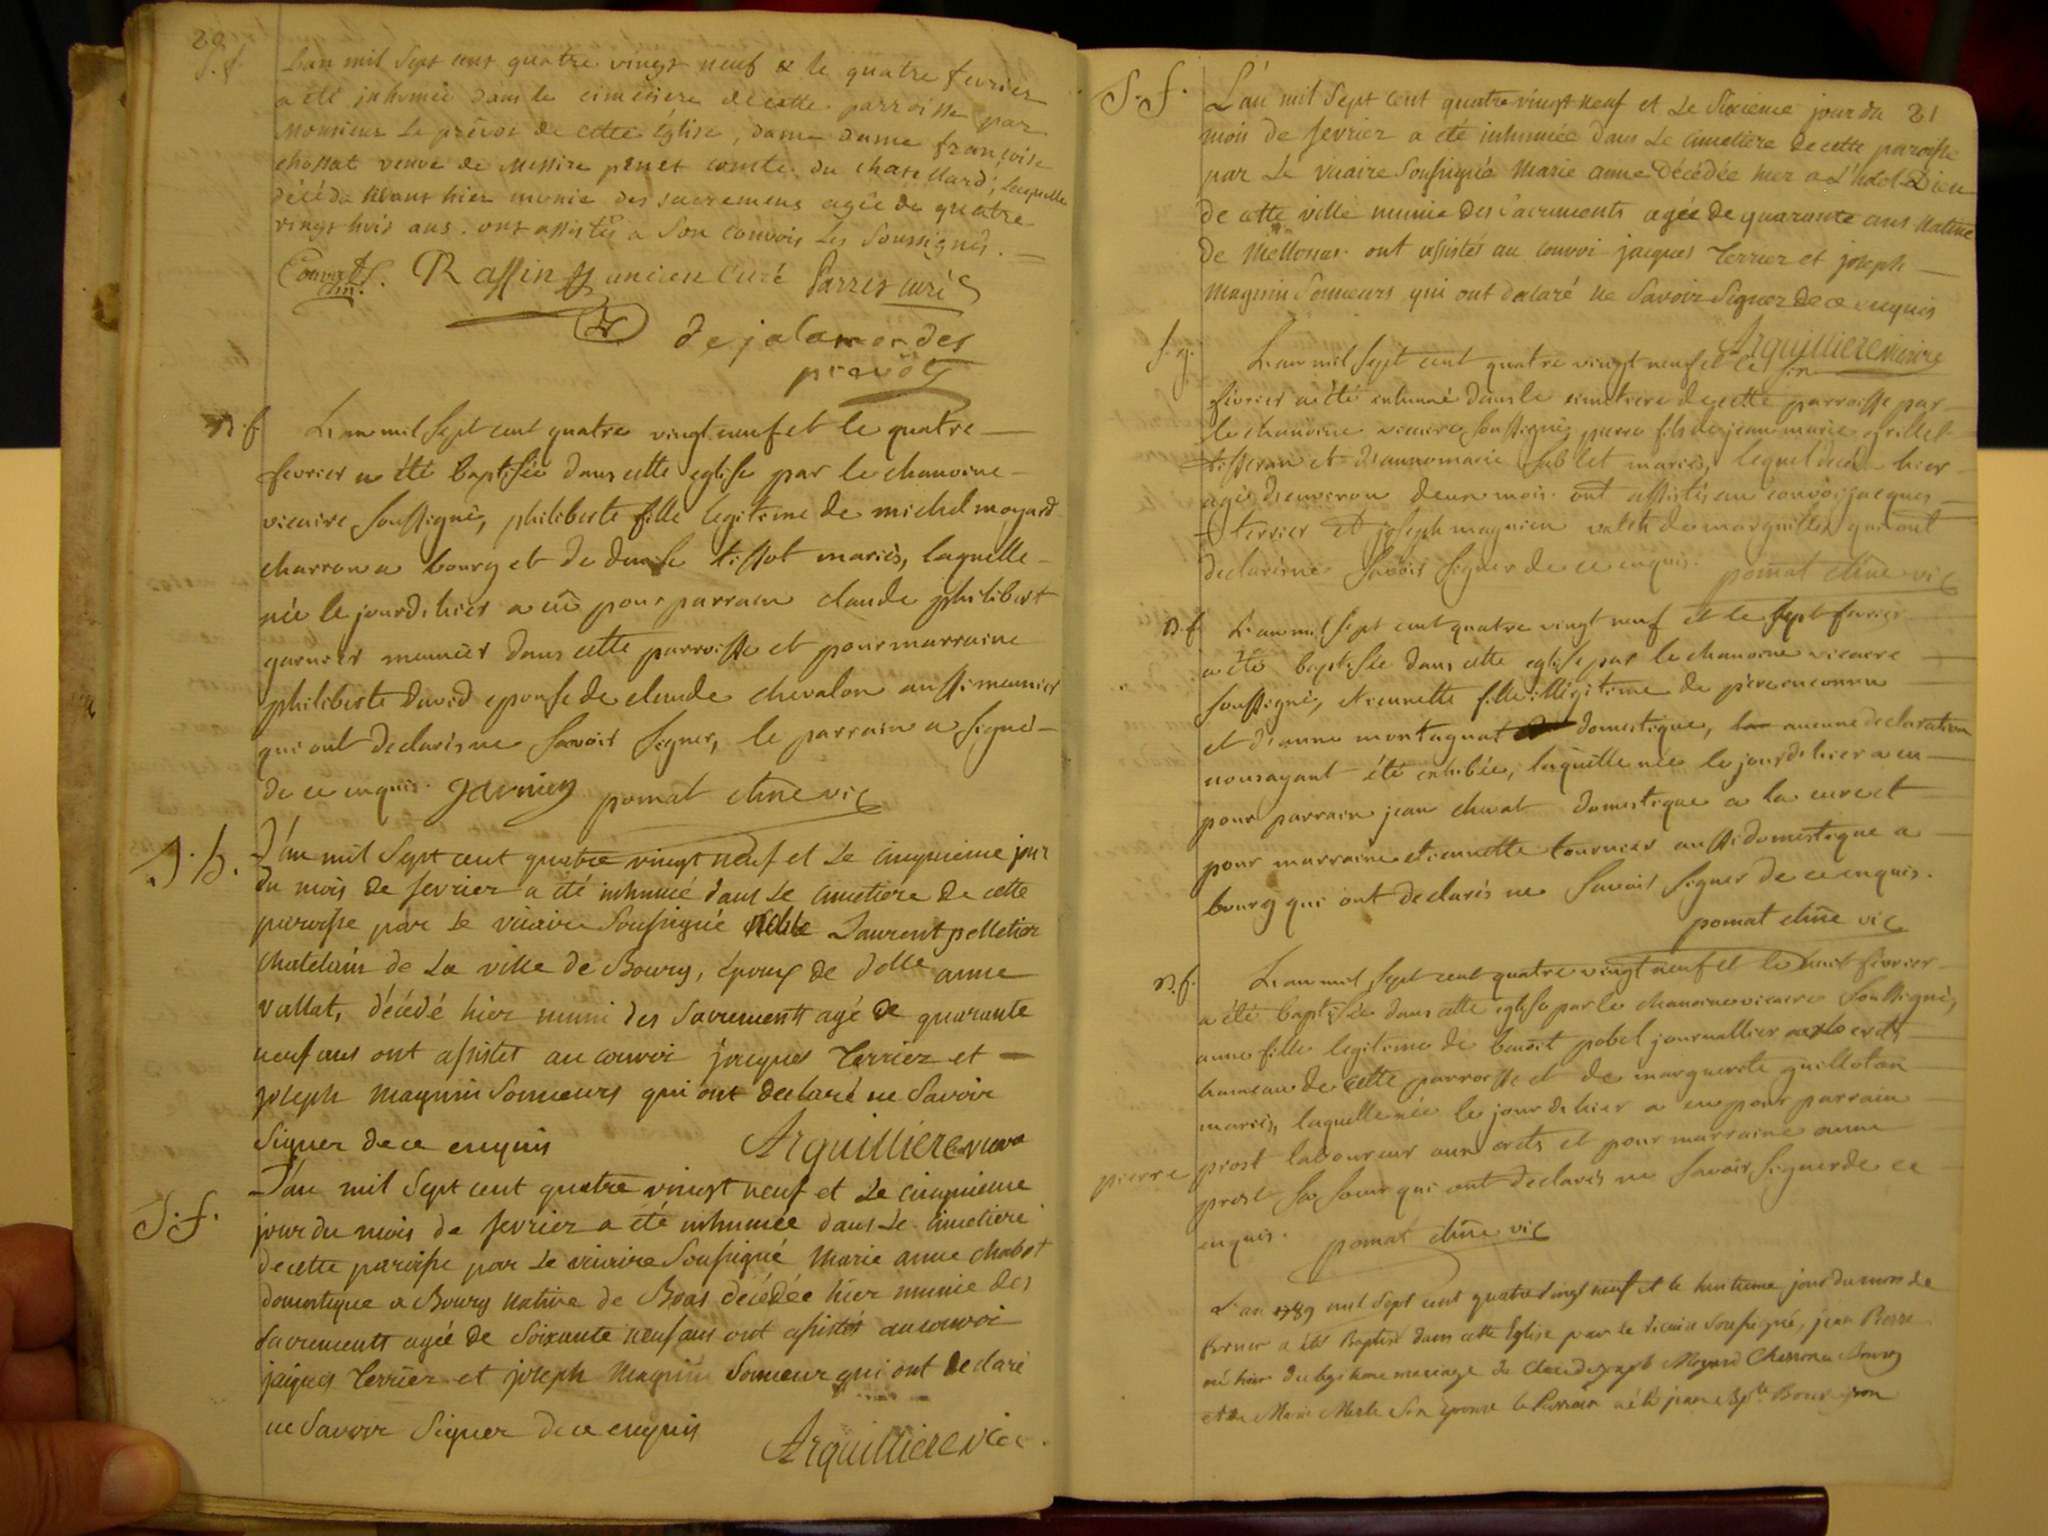 20
S. f.
L'an mil Sept cent quatre vingt neuf & le quatre fevrier
a été inhumée dans le cimetiere de cette parroisse par
Monsieur Le prévot de cette église, dame dame françoise
chossat veuve de Messire penet comte du chatellard, laquelle
décéda avant hier munie des sacremens agée de quatre
vingt huit ans. ont assistés a Son convois Les Soussignés.
Raffin ancien Curé Parres curé
de jalamondes
prévôt
B. f. L'an mil sept cent quatre vingt neuf et le quatre
fevrier a été baptisée dans cette eglise par le chanoine
vicaire soussigné, philiberte fille legitime de michel moyard
charron a bourg et de denise tissot mariés, laquelle
née le jour d'hier a eu pour parrain claude philibert
garnier meunier dans cette parroisse et pour marraine
philiberte david epouse de claude chevalon aussi meunier
qui ont declarés ne savoir signer, le parrain a signé
de ce enquis. garnier pomat chne vic
S. h. L'an mil Sept cent quatre vingt neuf et Le cinquieme jour
du mois de fevrier a été inhumé dans Le cimetiere de cette
paroisse par Le vicaire Soussigné Laurent pelletier
chatelain de La ville de Bourg, époux de dlle anne
vallat, décédé hier muni des Sacrements agé de quarante
neuf ans ont assistés au convoi jacques Terrier et
joseph magnin Sonneurs qui ont declaré ne Savoir
Signer de ce enquis Arquilliere vicaire
S. f. L'an mil Sept cent quatre vingt neuf et Le cinquieme
jour du mois de fevrier a été inhumée dans Le cimetiere
de cette paroisse par Le vicaire Soussigné Marie anne chabot
domestique a Bourg native de Boas décédée hier munie des
Sacrements agée de Soixante neuf ans ont assistés au convoi
jaques Terrier et joseph Magnin Sonneur qui ont declaré
ne Savoir Signer de ce enquis Arquilliere vic
S. f. L'an mil Sept cent quatre vingt neuf et Le Sixieme jour du 21
mois de fevrier a été inhumée dans Le cimetiere de cette paroisse
par Le vicaire Soussigné Marie anne décédée hier a L'hotel Dieu
de cette ville munie des Sacrements agée de quarante ans Native
de Mellonas. ont assistés au convoi jacques Terrier et joseph
magnin Sonneurs qui ont declaré ne Savoir Signer de ce enquis
Arquilliere vicaire
S. g. L'an mil sept cent quatre vingt neuf et le six
fevrier a été inhumé dans le cimetiere de cette parroisse par
le chanoine vicaire soussigné pierre fils de jean marie grillet
tisseran et d'annemarie sublet mariés, lequel décéda hier
agé d'environ deux mois. ont assistés au convoi jacques
terrier et joseph magnien valets de marguillier qui ont
declarés ne savoir signer de ce enquis. pomat chne vic
B. f. L'an mil sept cent quatre vingt neuf et le sept fevrier
a été baptisée dans cette eglise par le chanoine vicaire
soussigné, etiennette fille illégitime de père inconnu
et d'anne montagnat domestique, aucune declaration
nous ayant été exhibée, laquelle née le jour d'hier a eu
pour parrain jean chanat domestique a la cure et
pour marraine etiennette tournier aussi domestique a
bourg qui ont declarés ne savoir signer de ce enquis.
pomat chne vic
B. f. L'an mil sept cent quatre vingt neuf et le huit fevrier
a été baptisée dans cette eglise par le chanoine vicaire soussigné,
anne fille legitime de benoit pobel journallier
hameau de cette parroisse et de marguerite guilloton
mariés, laquelle née le jour d'hier a eu pour parrain
pierre prost laboureur aux et pour marraine anne
prost sa soeur qui ont declarés ne savoir signer de ce
enquis. pomat chne vic
L'an 1789 mil sept cent quatre vingt neuf et le huitieme jour du mois de
fevrier a été Baptisé dans cette Eglise par le vicaire soussigné, jean Pierre
né hier du légitime mariage de Claude joseph Moyard Charron a Bourg
et de Marie Merle Son épouse le Parrain a été jean Bpte Bourgeon